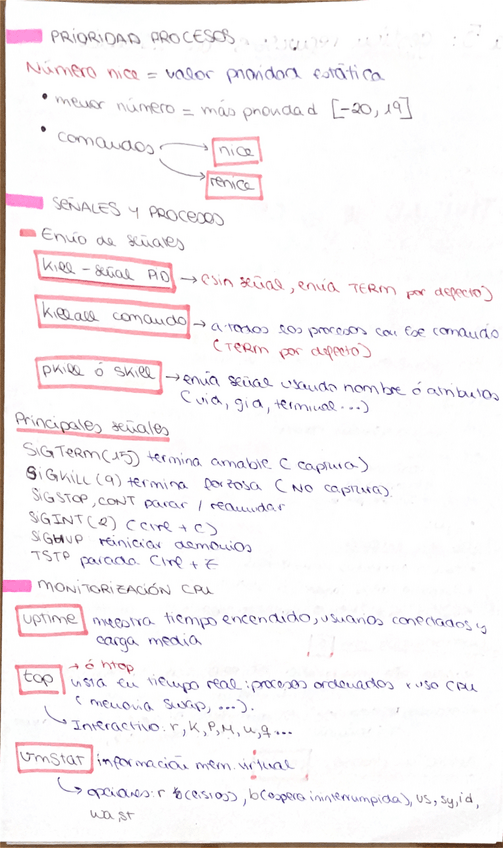 PRIORIDAD PROCESOS
Número nice = valor prioridad estática
• menor número = más prioridad [-20, 19]
• comandos → nice
→ renice
SEÑALES Y PROCESOS
Envío de señales
kill -señal PID → (sin señal, envía TERM por defecto)
killall comando → a todos los procesos con ese comando
(TERM por defecto)
pkill ó skill → envía señal usando nombre ó atributos
(uid, gid, terminal...)
Principales señales
SIGTERM(15) termina amable (captura)
SIGKILL(9) termina forzosa (NO captura)
SIGSTOP, CONT parar / reanudar
SIGINT(2) (Ctrl + C)
SIGHUP reiniciar demonios
TSTP parada Ctrl + Z
MONITORIZACIÓN CPU
uptime muestra tiempo encendido, usuarios conectados y
carga media
→ ó htop
top lista en tiempo real: procesos ordenados + uso CPU
(memoria swap, ...).
↳ Interactivo: r, K, P, M, u, q...
vmstat información mem. virtual
↳ opciones: r b(espera ininterrumpida), us, sy, id,
wa, st